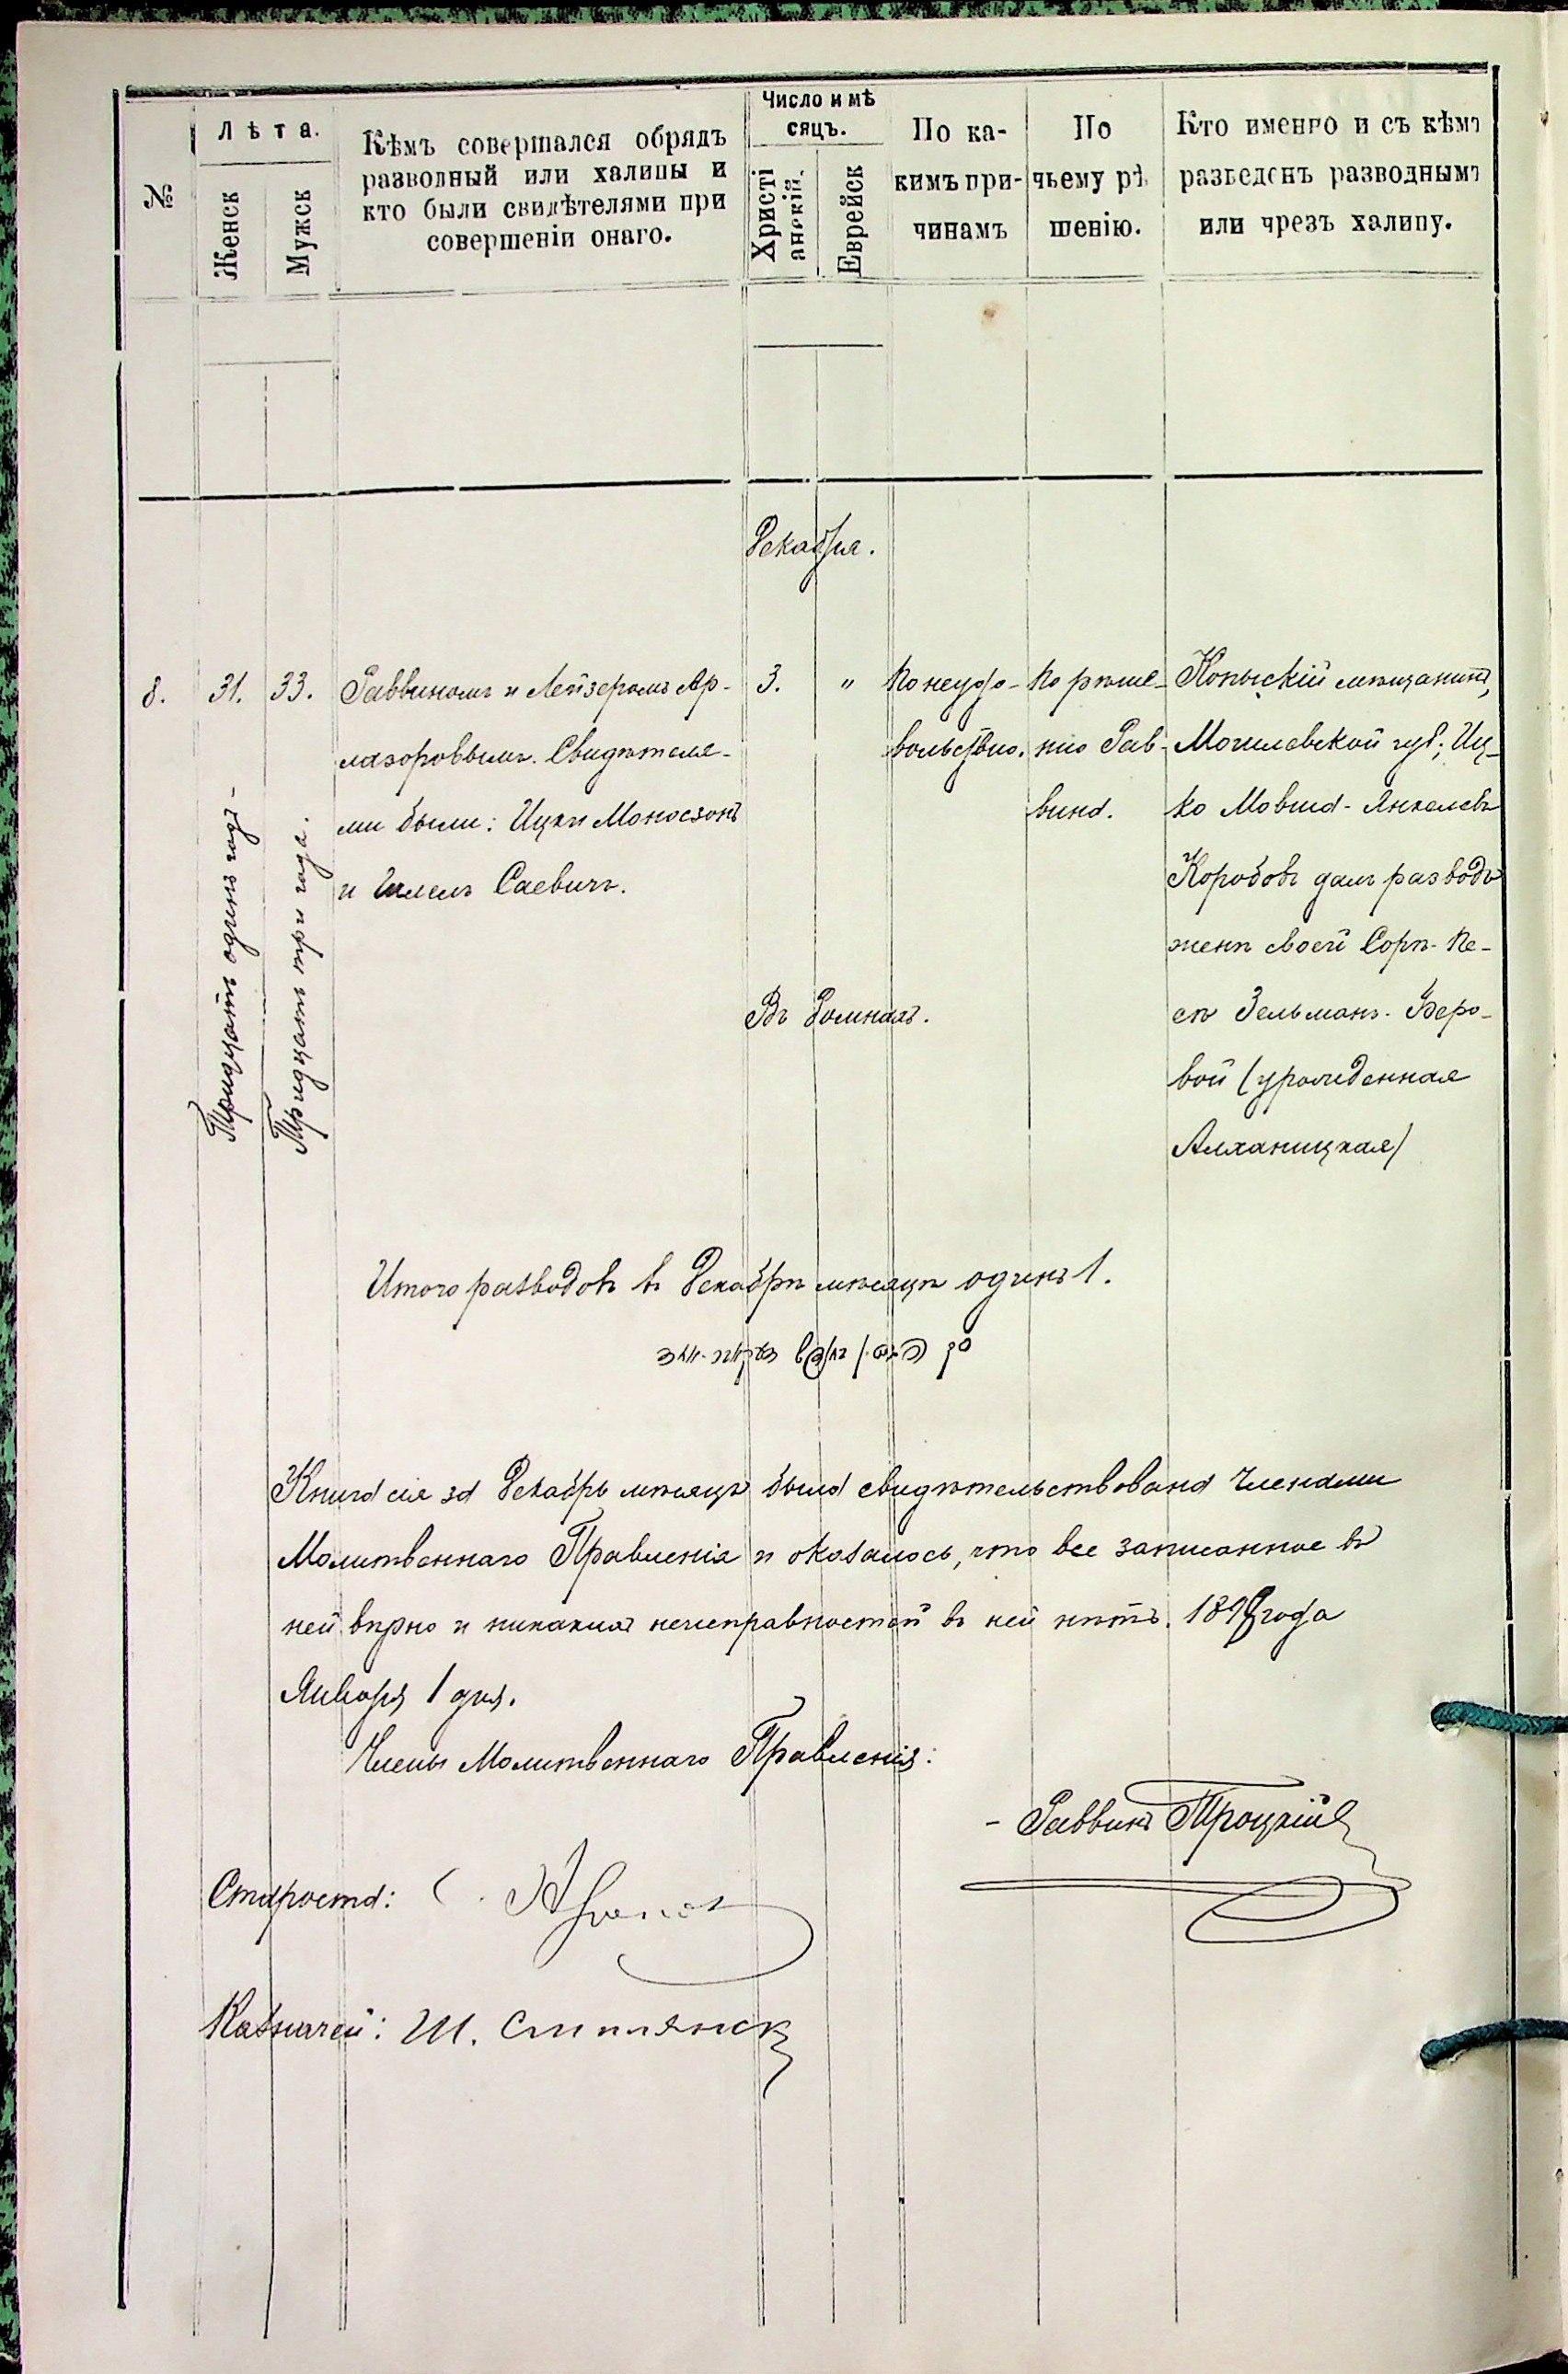 №
Лѣта.
Женск
Мужск
Кѣмъ совершался обрядъ
разводный или халицы и
кто были свидѣтелями при
совершеніи онаго.
Число и мѣ
сяцъ.
Христі
анскій.
Еврейск
По ка-
кимъ при-
чинамъ
По
чьему рѣ
шенію.
Кто именно и съ кѣмъ
разведенъ разводнымъ
или чрезъ халицу.
Декабря.
8.
31.
Тридцать одинъ годъ-
33.
Тридцать три года.
Раввиномъ и Лейзеромъ Ар-
лазоровымъ. Свидѣтеля-
ми были: Ицки Моносзонъ
и Саевичъ.
3.
"
Въ Ромнахъ.
По неудо-
вольствію.
По рѣше-
нію Рав-
вина.
Копыскій мѣщанинъ,
Могилевской губ; Иц-
ко Мовша-Янкелевъ
Коробовъ далъ разводъ
женѣ своей Сорѣ-Пе-
сѣ Зельманъ-Беро-
вой (урожденная
Алханицкая)
Итого разводовъ въ Декабрѣ мѣсяцѣ одинъ 1.
Книга сія за Декабрь мѣсяцъ была свидѣтельствована Членами
Молитвеннаго Правленія и оказалось, что все записанное въ
ней вѣрно и никакихъ неисправностей въ ней нѣтъ. 1898 года
Января 1 дня.
Члены Молитвеннаго Правленія:
- Раввинъ Троцкій
Староста:
Казначей: Ш.